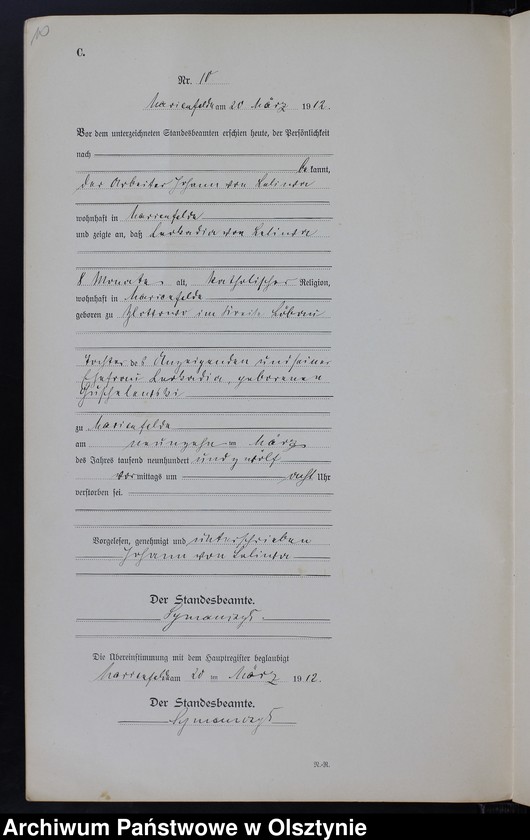 10
C.
Nr. 10
Marienfelde am 20 März 1912.
Vor dem unterzeichneten Standesbeamten erschien heute, der Persönlichkeit
nach
be kannt,
der Arbeiter Johann von
wohnhaft in Marienfelde
und zeigte an, daß Leokadia von
8 Monate alt, Katholischer Religion,
wohnhaft in Marienfelde
geboren zu Zlottowo im Kreise Löbau
Tochter des Anzeigenden und seiner
Ehefrau Leokadia, geborenen
zu Marienfelde
am neunzehn ten März
des Jahres tausend neunhundert und zwölf
vor mittags um acht Uhr
verstorben sei.
Vorgelesen, genehmigt und unterschrieben
Johann von
Der Standesbeamte.
Die Übereinstimmung mit dem Hauptregister beglaubigt
Marienfelde am 20 ten März 1912.
Der Standesbeamte.
N.-R.
Archiwum Państwowe w Olsztynie